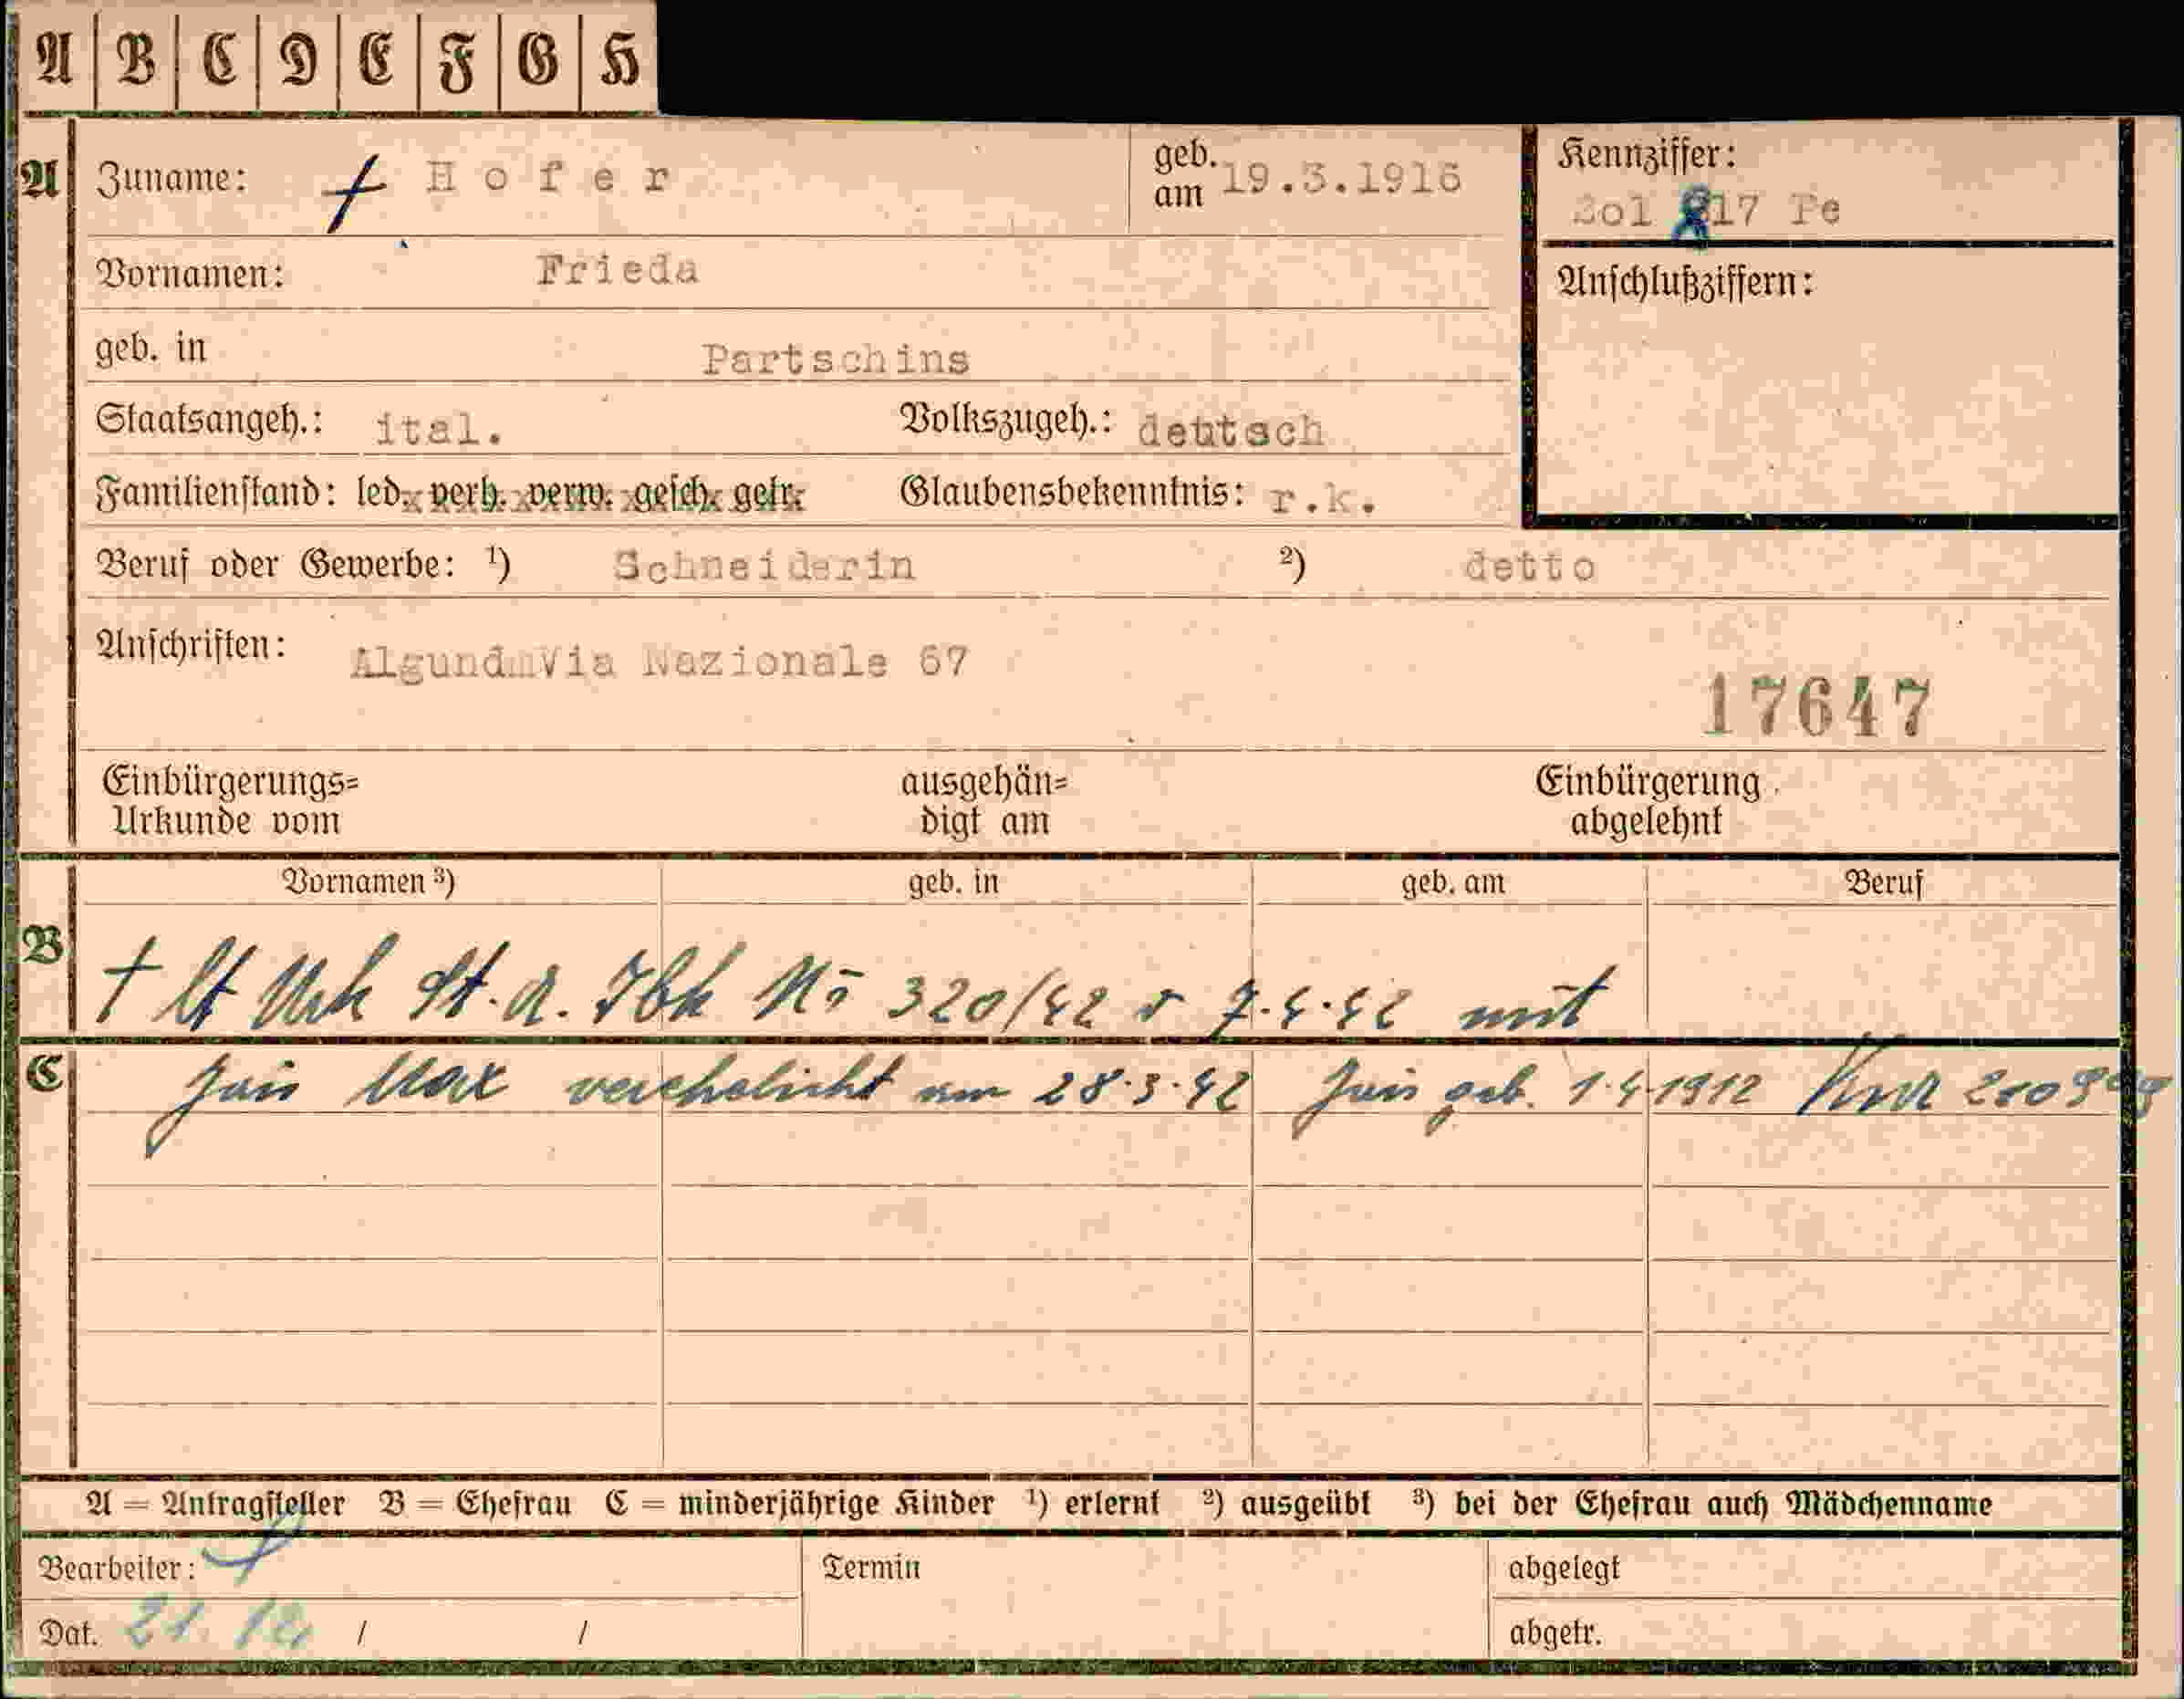 A B C D E F G H
A Zuname: Hofer geb. am 19.3.1916 Kennziffer:
17 Pe
Vornamen: Frieda Anschlußziffern:
geb. in Partschins
Staatsangeh.: ital. Volkszugeh.: deutsch
Familienstand: led. verh. verw. gesch. getr. Glaubensbekenntnis: r.k.
Beruf oder Gewerbe: ¹) Schneiderin ²) detto
Anschriften: Algund Via Nazionale 67
17647
Einbürgerungs= Urkunde vom ausgehän= digt am Einbürgerung abgelehnt
Vornamen ³) geb. in geb. am Beruf
B † lt Urk St. A. Ibk No 320/42 v 7.4.42 mit
C Max verehelicht am 28.3.42 geb. 1.4.1912
A = Antragsteller B = Ehefrau C = minderjährige Kinder ¹) erlernt ²) ausgeübt ³) bei der Ehefrau auch Mädchenname
Bearbeiter: Termin abgelegt
Dat. 21. 12. / / abgetr.